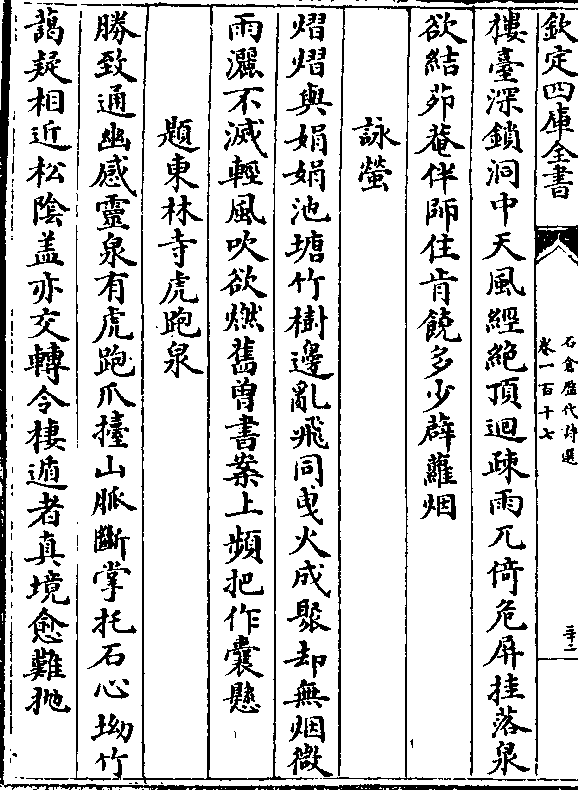 欽定四庫全書
石倉歷代詩選
卷一百十七
三十二
樓臺深鎖洞中天風經絶頂迴疎雨兀倚危屏挂落泉
欲結茆菴伴師住肯饒多少薜蘿烟
詠螢
熠熠與娟娟池塘竹樹邊亂飛同曵火成聚却無烟微
雨灑不滅輕風吹欲燃舊曽書案上頻把作囊懸
題東林寺虎跑泉
勝致通幽感靈泉有虎跑爪擡山脈斷掌托石心坳竹
藹疑相近松陰盖亦交轉令棲遁者真境愈難抛